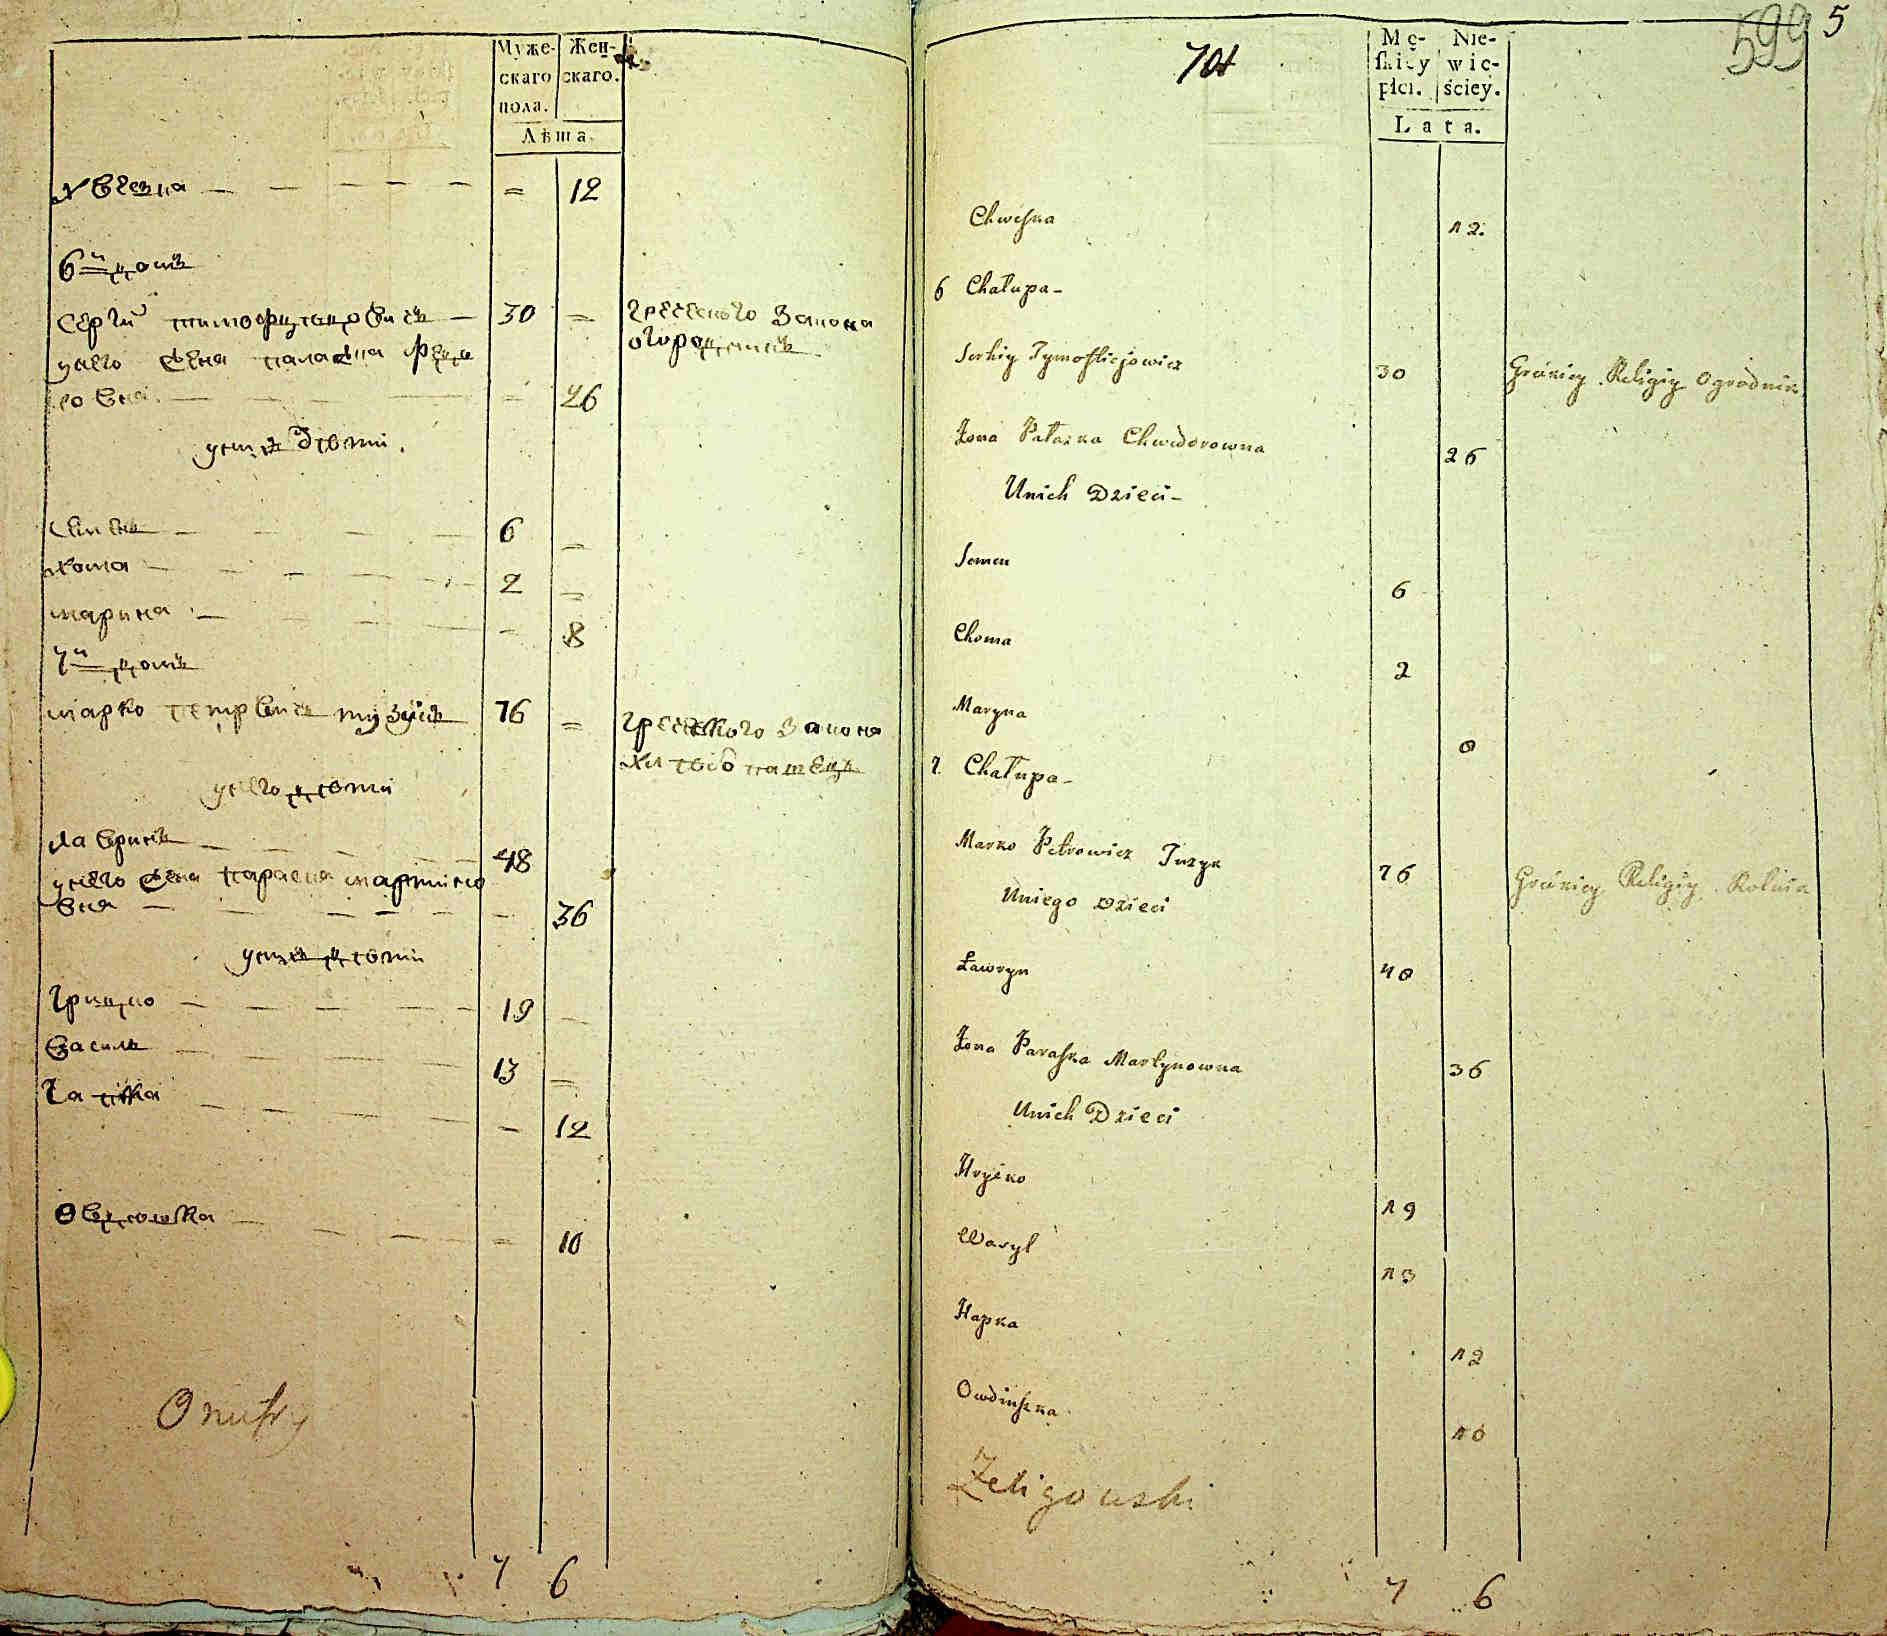 Муже-
скаго
пола.
Жен-
скаго.
Лѣта.
Хвеска — — — — = 12
6й домъ
Сергій Тимофѣевичъ — 30 = греческого закона
огородникъ
у него жена Палажка Федо
ровна — — — = 26
у нихъ дѣти.
Семенъ — — — 6 =
Хома — — — 2 =
Марина — — — = 8
7й домъ
Марко Петровичъ Тузукъ 76 = греческого закона
у него дѣти
Лавринъ — — — 48
у него жена Параска Мартино
вна — — — — 36
у нихъ дѣти
Грицко — — — 19 —
Василь — — — 13 =
Гапка — — — — 12
Овдюшка — — — = 10
Onufry
7 6
701
599 5
Mę-
ſkiey
płci.
Nie-
wie-
ściey.
Lata.
Chweſka 12.
6 Chałupa-
Serhiy Tymofiiejowicz 30 Gréckiey Religiy Ogrodnik
Żona Pałażka Chwedorowna 26
Unich Dzieci-
Semen 6
Choma 2
Maryna 8
7. Chałupa-
Marko Petrowicz Tuzyk 76 Gréckiey Religiy Rolnik
Uniego Dzieci
Ławryn 48
Żona Paraſka Martynowna 36
Unich Dzieci
Hryćko 19
Wasyl 13
Hapka 12
Owdiuſzka 10
Żeligowski
7 6